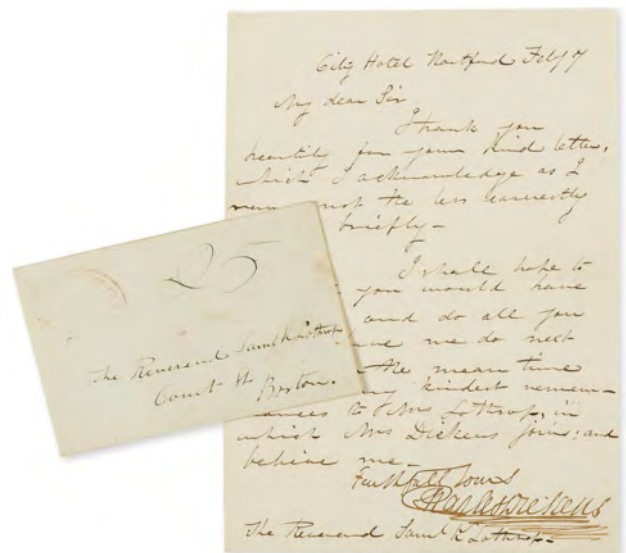 City Hotel Hartford Feby 7
My dear Sir
I thank you
heartily for your kind letter,
which I acknowledge as I
not the less earnestly
briefly –
I shall hope to
you would have
and do all you
me do next
the mean time
my kindest remem-
Mrs Lothrop, in
which Mrs Dickens joins; and
believe me –
Faithfully Yours
Charles Dickens
The Reverend Saml K Lothrop –
25
The Reverend Saml K Lothrop
Court St
Boston.